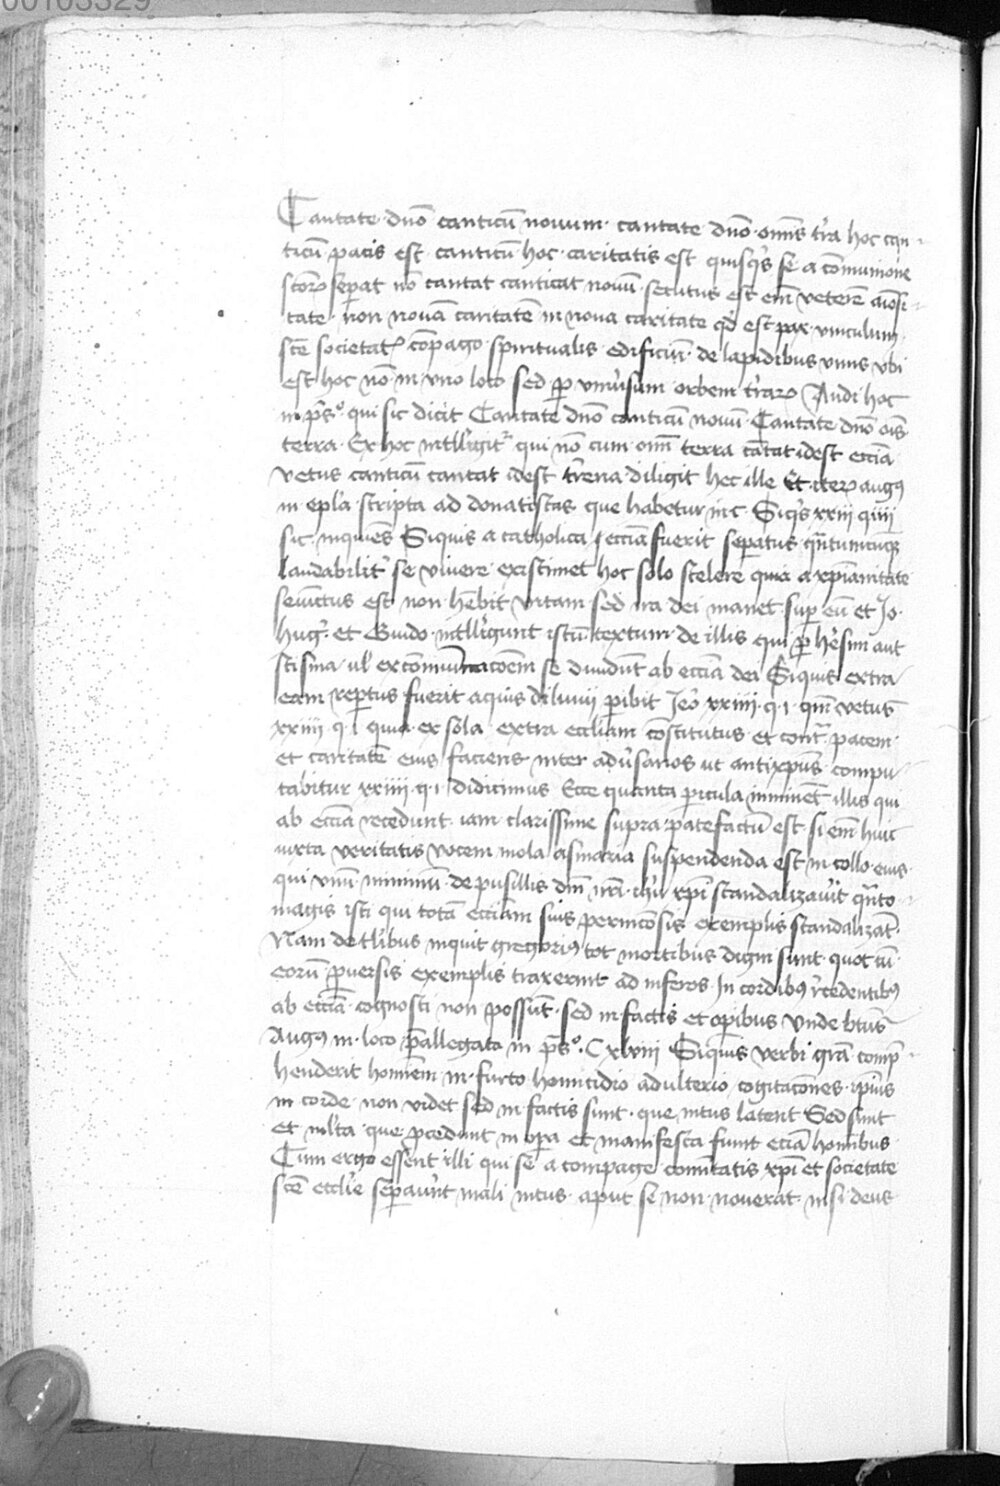 00103329
Cantate dn̄o canticū nouum cantate dn̄o om̄s t'ra hoc can
ticū pacis est canticū hoc caritatis est quisq's se a cōmunione
sc̄orꝝ sep̄at nō cantat canticat nouū secutus est em̄ veterē
tate non nouā caritatē in noua caritate qd̄ est pax vinculum
sc̄e societat' cōpago spiritualis edificiū de lapidibus viuis vbi
est hoc nō in vno loco sed ꝑ vniu'sum orbem t'rarꝝ Audi hoc
in ps̄o qui sic dicit Cantate dn̄o canticū nouū Cantate dn̄o oīs
terra Ex hoc intelligit' qui nō cum om̄i terra cātat idest ecc̄ia
vetus canticū cantat idest t'rena diligit hec ille Et iterꝝ augꝰ
in ep̄la scripta ad donatistas que habetur in c Siq's xxiii q iiii
sic inquiēs Siquis a catholica ecc̄ia fuerit sep̄atus qn̄tumcūqꝫ
laudabilit' se viuere existimet hoc solo scelere quia a xp̄ianitate
seiūctus est non hēbit vitam sed ira dei manet sup eū et Jo
hug' et Guido intelligunt istū textum de illis qui ꝑ h'esim aut
scisma ul' excōmunicacōem se diuidūt ab ecc̄ia dei Siquis extra
eam rep̄tus fuerit aquis diluuii ꝑibit Jero xxiiii q i qm̄ vetus
xxiiii q i quia ex sola extra eccliam cōstitutus et cont̄ pacem
et caritatē eius faciens inter adu'sarios ut antixp̄us compu
tabitur xxiiii q i didicimus Ecce quanta ꝑicula inminēt illis qui
ab ecc̄ia recedunt iam clarissime supra patefactū est si em̄ huic
iuxta veritatis vocem mola asinaria suspendenda est in collo eius
qui vnū minimū de pusillis dn̄i nr̄i ih'u xp̄i scandalizau'it qn̄to
magis isti qui totā ecc̄iam suis ꝑniciosis exemplis scandalizāt
Nam de t'libus inquit gregoriꝰ tot mortibus digni sunt quot cū
eorū ꝑuersis exemplis traxerint ad inferos In cordibꝰ r'cedentibꝰ
ab ecc̄ia cognosci non possūt sed in factis et oꝑibus Vnde bt̄us
Augꝰ in loco p̄allegato in ps̄o Cxlviii Siquis verbi grā comp̄
henderit hominem in furto homicidio adulterio cogitacōnes ip̄ius
in corde non videt sed in factis sunt que intus latent Sed sunt
et m'lta que ꝓcedunt in oꝑa et manifesta fiunt eciā homībus
Cum ergo essent illi qui se a compage vnitatis xp̄i et societate
sc̄e ecclie sep̄au'nt mali intus aput se non nouerat nisi deus